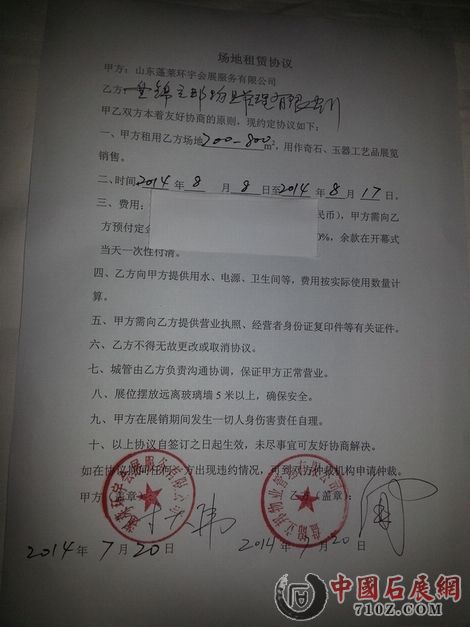 场地租赁协议
甲方：山东蓬莱环宇会展服务有限公司
乙方：盘锦立邦物业管理有限公司
甲乙双方本着友好协商的原则，现约定协议如下：
一、甲方租用乙方场地700-800m²，用作奇石、玉器工艺品展览
销售。
二、时间2014年8月8日至2014年8月17日。
三、费用： 民币），甲方需向乙
方预付定金 0%，余款在开幕式
当天一次性付清。
四、乙方向甲方提供用水、电源、卫生间等，费用按实际使用数量计
算。
五、甲方需向乙方提供营业执照、经营者身份证复印件等有关证件。
六、乙方不得无故更改或取消协议。
七、城管由乙方负责沟通协调，保证甲方正常营业。
八、展位摆放远离玻璃墙5米以上，确保安全。
九、甲方在展销期间发生一切人身伤害责任自理。
十、以上协议自签订之日起生效，未尽事宜可友好协商解决。
如在协议期中任何一方出现违约情况，可到双方仲裁机构申请仲裁。
甲方（盖章） 乙方（盖章：
2014年7月20日 2014年7月20日
中國石展網
710Z.COM